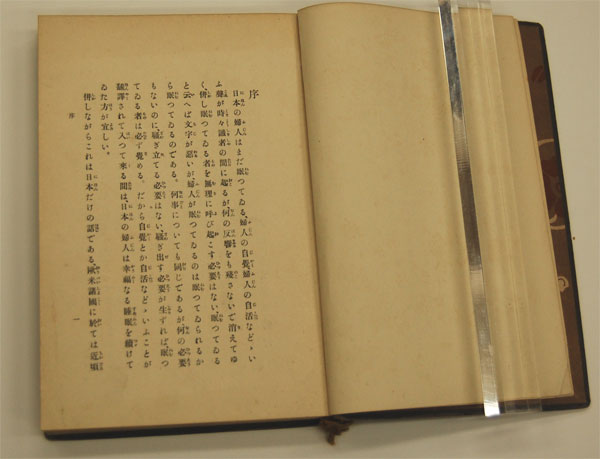 序
日本の婦人はまだ眠つてゐる、婦人の自覺、婦人の自活などゝい
ふ聲が時々識者の間に起るが何の反響をも殘さないで消えてゆ
く、併し眠つてゐる者を無理に呼び起こす必要はない、眠つてゐる
と云へば文字が惡いが、婦人が眠つてゐるのは眠つてゐられるか
ら眠つてゐるのである。何事についても同じであるが何の必要
もないのに騷ぎ立てる必要はない、騷ぎ出す必要が生ずれば、眠つ
てゐる者は必ず覺める。だから自覺とか自活などゝいふことが
飜譯されて入つて來る間は、日本の婦人は幸福なる睡眠を續けて
ゐた方が宜しい。
併しながらこれは日本だけの話である、歐米諸國に於ては近頃
序
一